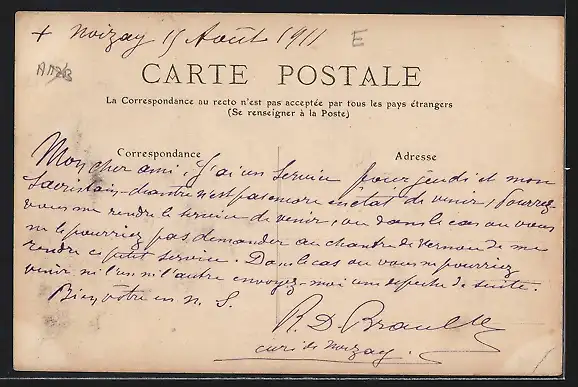 + Noizay 15 Août 1911
E
CARTE POSTALE
La Correspondance au recto n'est pas acceptée par tous les pays étrangers
(Se renseigner à la Poste)
Correspondance
Adresse
Mon cher ami, J'ai un service pour jeudi et mon
Sacristain-chantre n'est pas encore en état de venir, Pourrez
vous me rendre le service de venir, ou dans le cas ou vous
ne le pourriez pas demander au chantre de Vernou de me
rendre ce petit service. Dans le cas ou vous ne pourriez
venir ni l'un ni l'autre envoyez-moi une depeche de suite.
Bien vôtre en n. S.
R. D.
curé de Noizay.